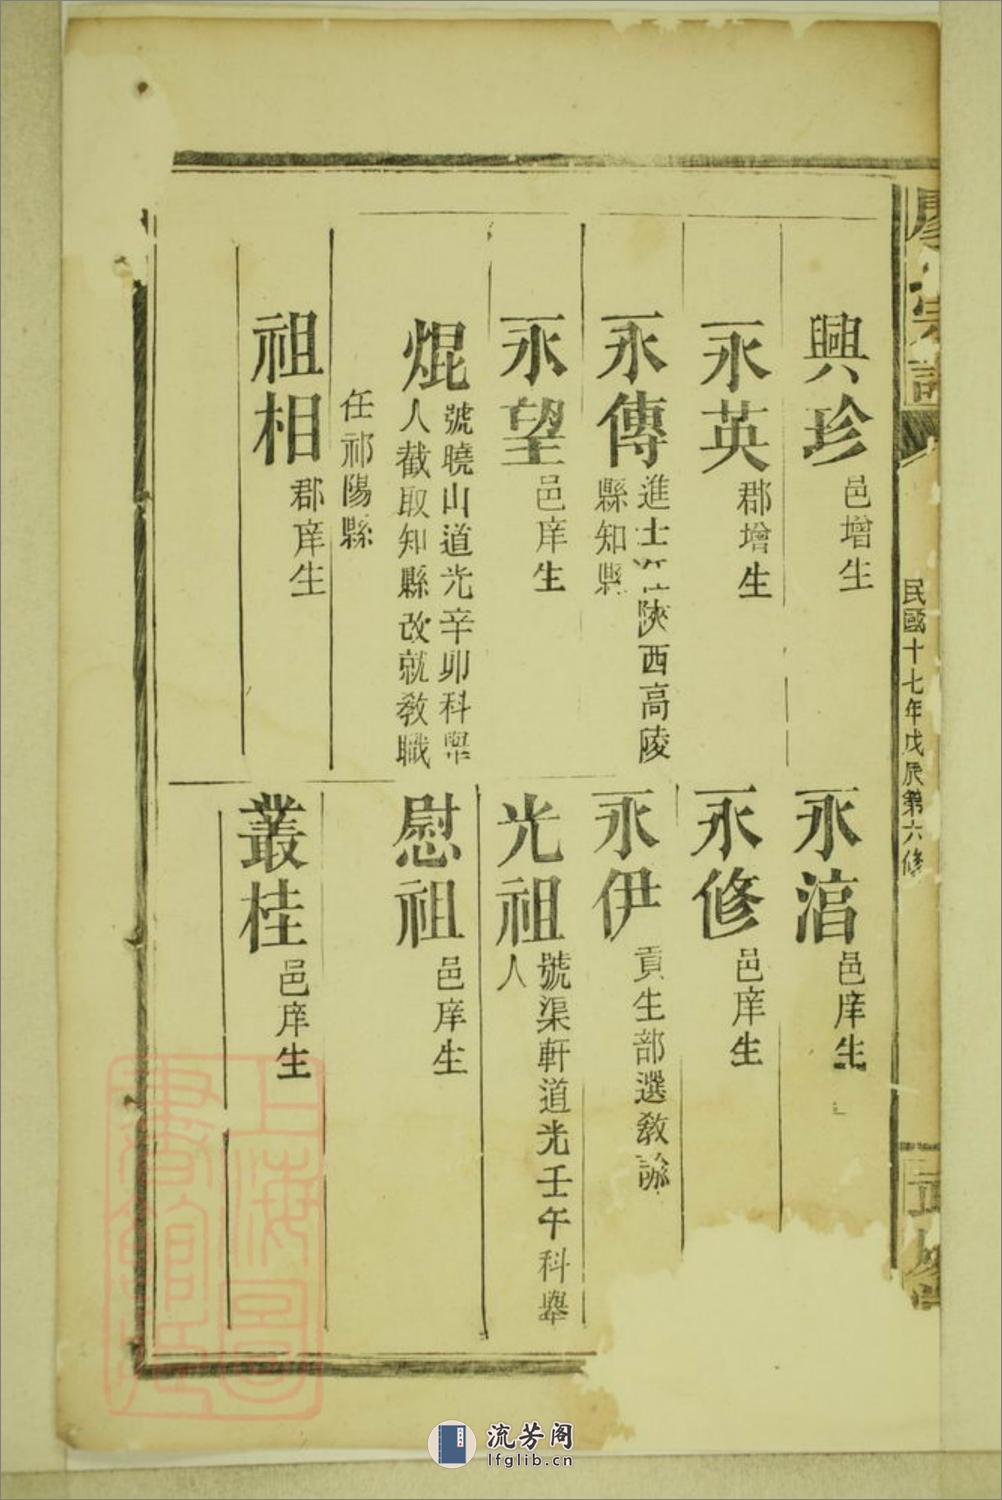 民國十七年戊辰第六修
興珍 邑增生
永英 郡增生
永傳 進士 陝西高陵
縣知縣
永望 邑庠生
焜 號曉山道光辛卯科舉
人截取知縣改就教職
任祁陽縣
祖相 郡庠生
永涫 邑庠生
永修 邑庠生
永伊 貢生部選教諭
光祖 號渠軒道光壬午科舉
人
慰祖 邑庠生
叢桂 邑庠生
上海圖
書館藏
流芳阁
lfglib.cn